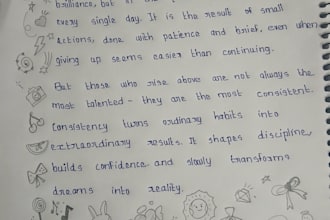 brilliance, but
every single day. It is the result of small
actions, done with patience and brief, even when
giving up seems easier than continuing.
But those who rise above are not always the
most talented - they are the most consistent.
Consistency turns ordinary habits into
extraordinary results. It shapes discipline,
builds confidence and slowly transforms
dreams into reality.